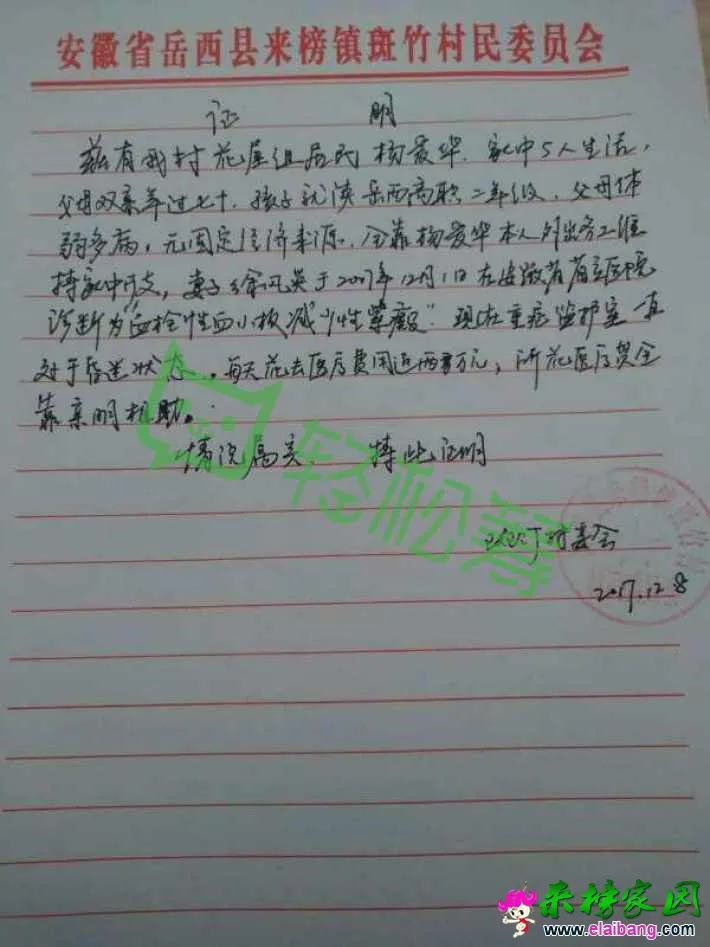 安徽省岳西县来榜镇斑竹村民委员会
证 明
兹有我村花屋组居民杨爱华，家中5人生活，
父母双亲年过七十，孩子就读岳西高职二年级，父母体
弱多病，无固定经济来源，全靠杨爱华本人外出务工维
持家中开支，妻子徐 英于2007年12月1日在安徽省省立医院
诊断为“血栓性血小板减少性紫癜”现在重症监护室一直
处于昏迷状态，每天花去医疗费用近两万元，所花医疗费全
靠亲朋相助。
情况属实 特此证明
斑竹村委会
2017.12.8
轻松筹
来榜家园
www.elaibang.com